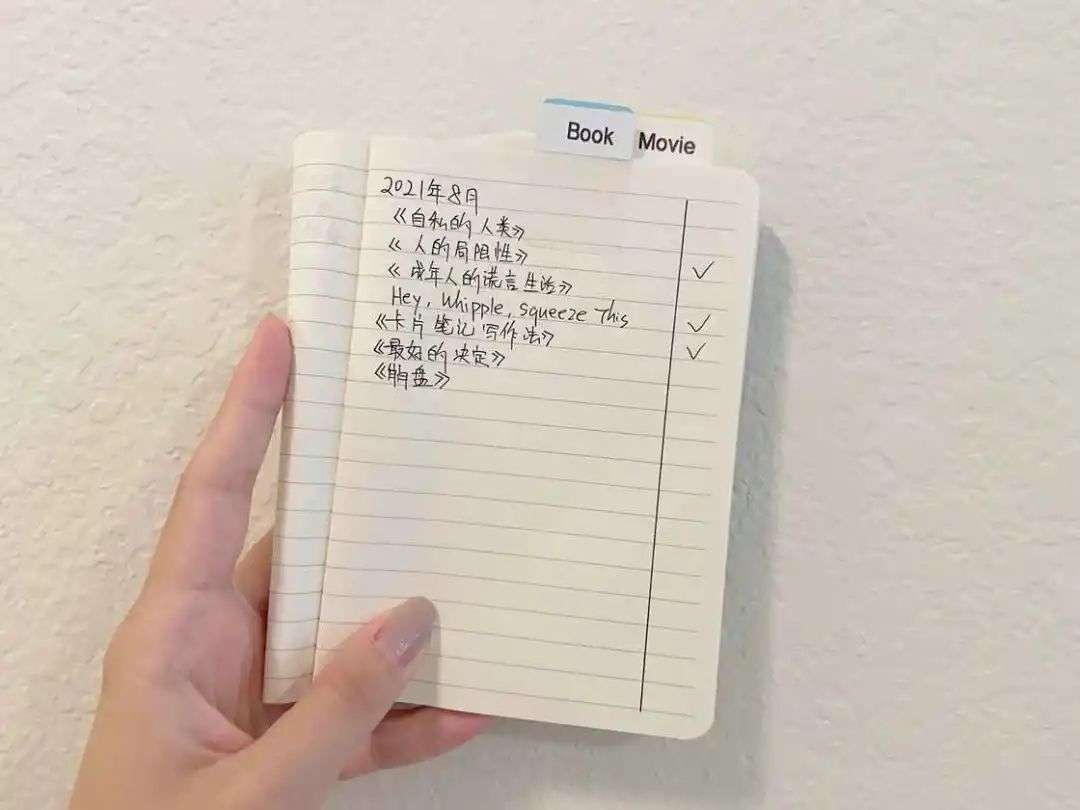 Book
Movie
2021年8月
《自私的人类》
《人的局限性》
《成年人的谎言生活》
Hey, Whipple, squeeze This
《卡片笔记写作法》
《最好的决定》